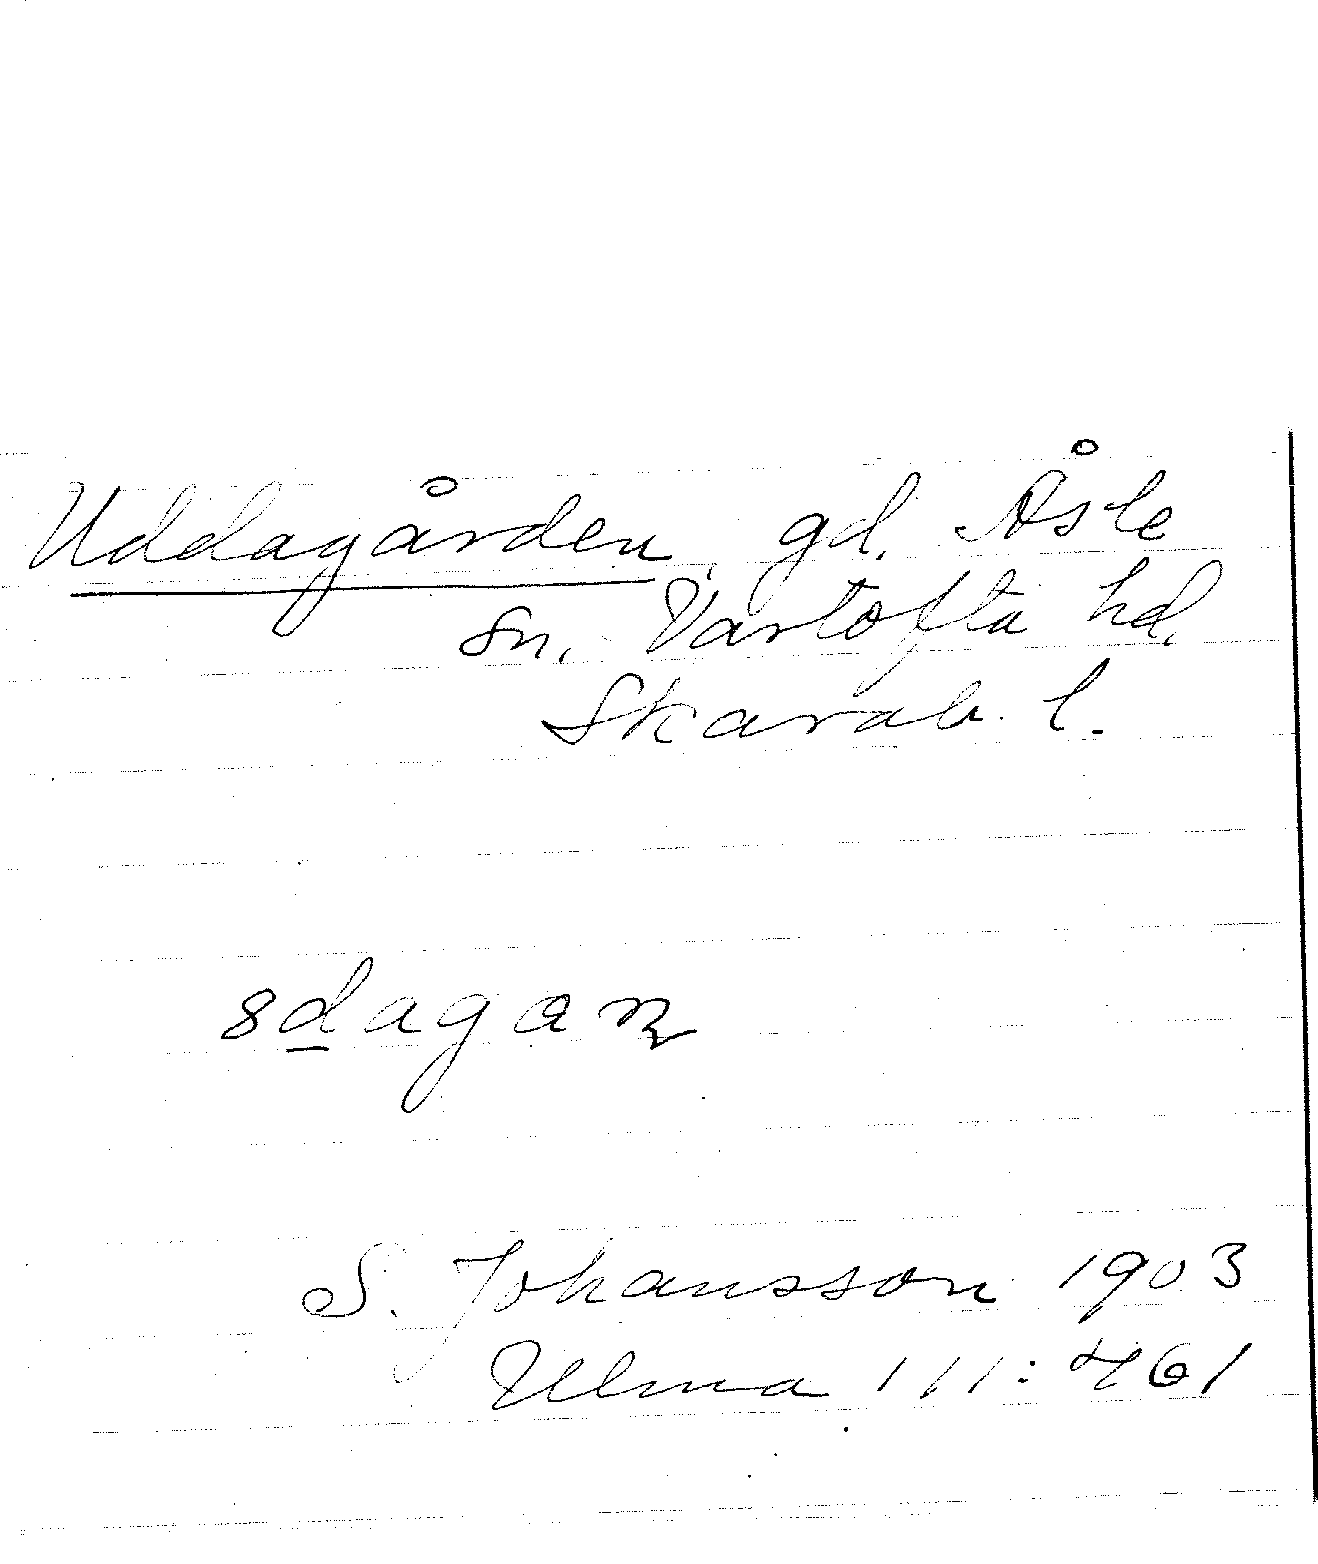 Uddagården, gd. Åsle
sn. Vartofta hd.
Skarab. l.
8dagan
S. Johansson 1903
Ulma 111:461